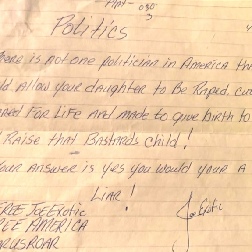 Apt- 030
3
Politics
4
here is not one politician in America tha
ld allow your daughter to Be Raped, cu
ed For Life and made to give Birth to
Raise that Bastards child!
our answer is yes you would your A
Liar!
FREE JoeExotic
FREE AMERICA
ARUSROAR
Joe Exotic